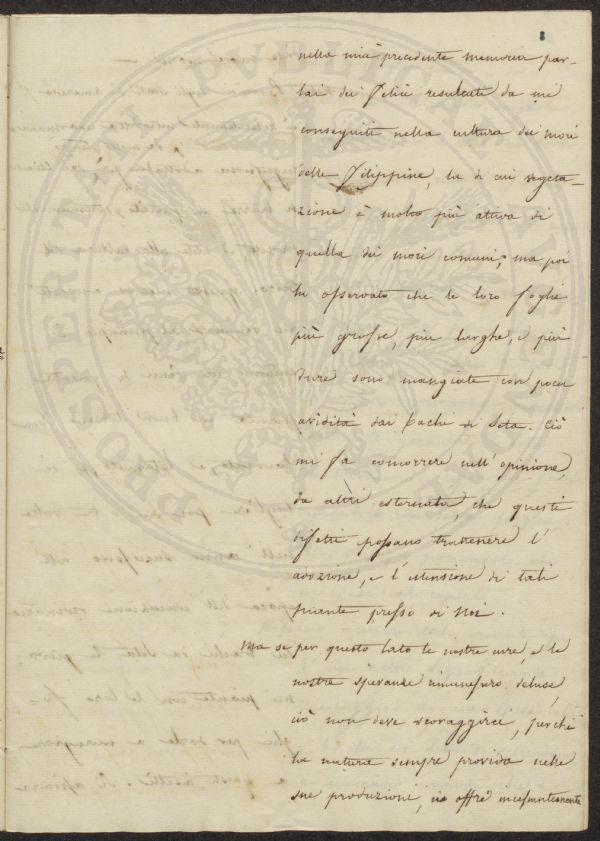 8
nella mia precedente memoria par-
lai dei felici resultati da me
conseguiti nella cultura dei mori
delle Filippine, la di cui vegeta-
zione è molto più attiva di
quella dei mori comuni; ma poi
ho osservato che le loro foglie
più grosse, più larghe, e più
dure sono mangiate con poca
avidità dai bachi di Seta. Ciò
mi fa concorrere nell'opinione,
da altri esternata, che questi
difetti possano trattenere l'
adozione, e l'estensione di tali
piante presso di Noi.
Ma se per questo lato le nostre cure, e le
nostre speranze rimanessero deluse,
ciò non deve scoraggirci, perché
la natura sempre provida nelle
sue produzioni, ci offre incessantemente